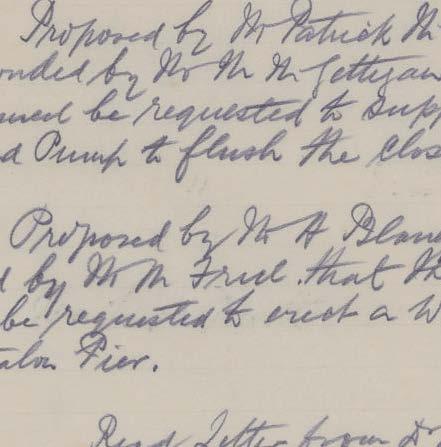 Proposed by Mr Patrick M
onded by Mr M McGettigan
uncil be requested to supp
d Pump to flush the Clos
Proposed by Mr H Blan
d by Mr M Friel that th
be requested to erect a W
Pier.
Read Letter from Dr